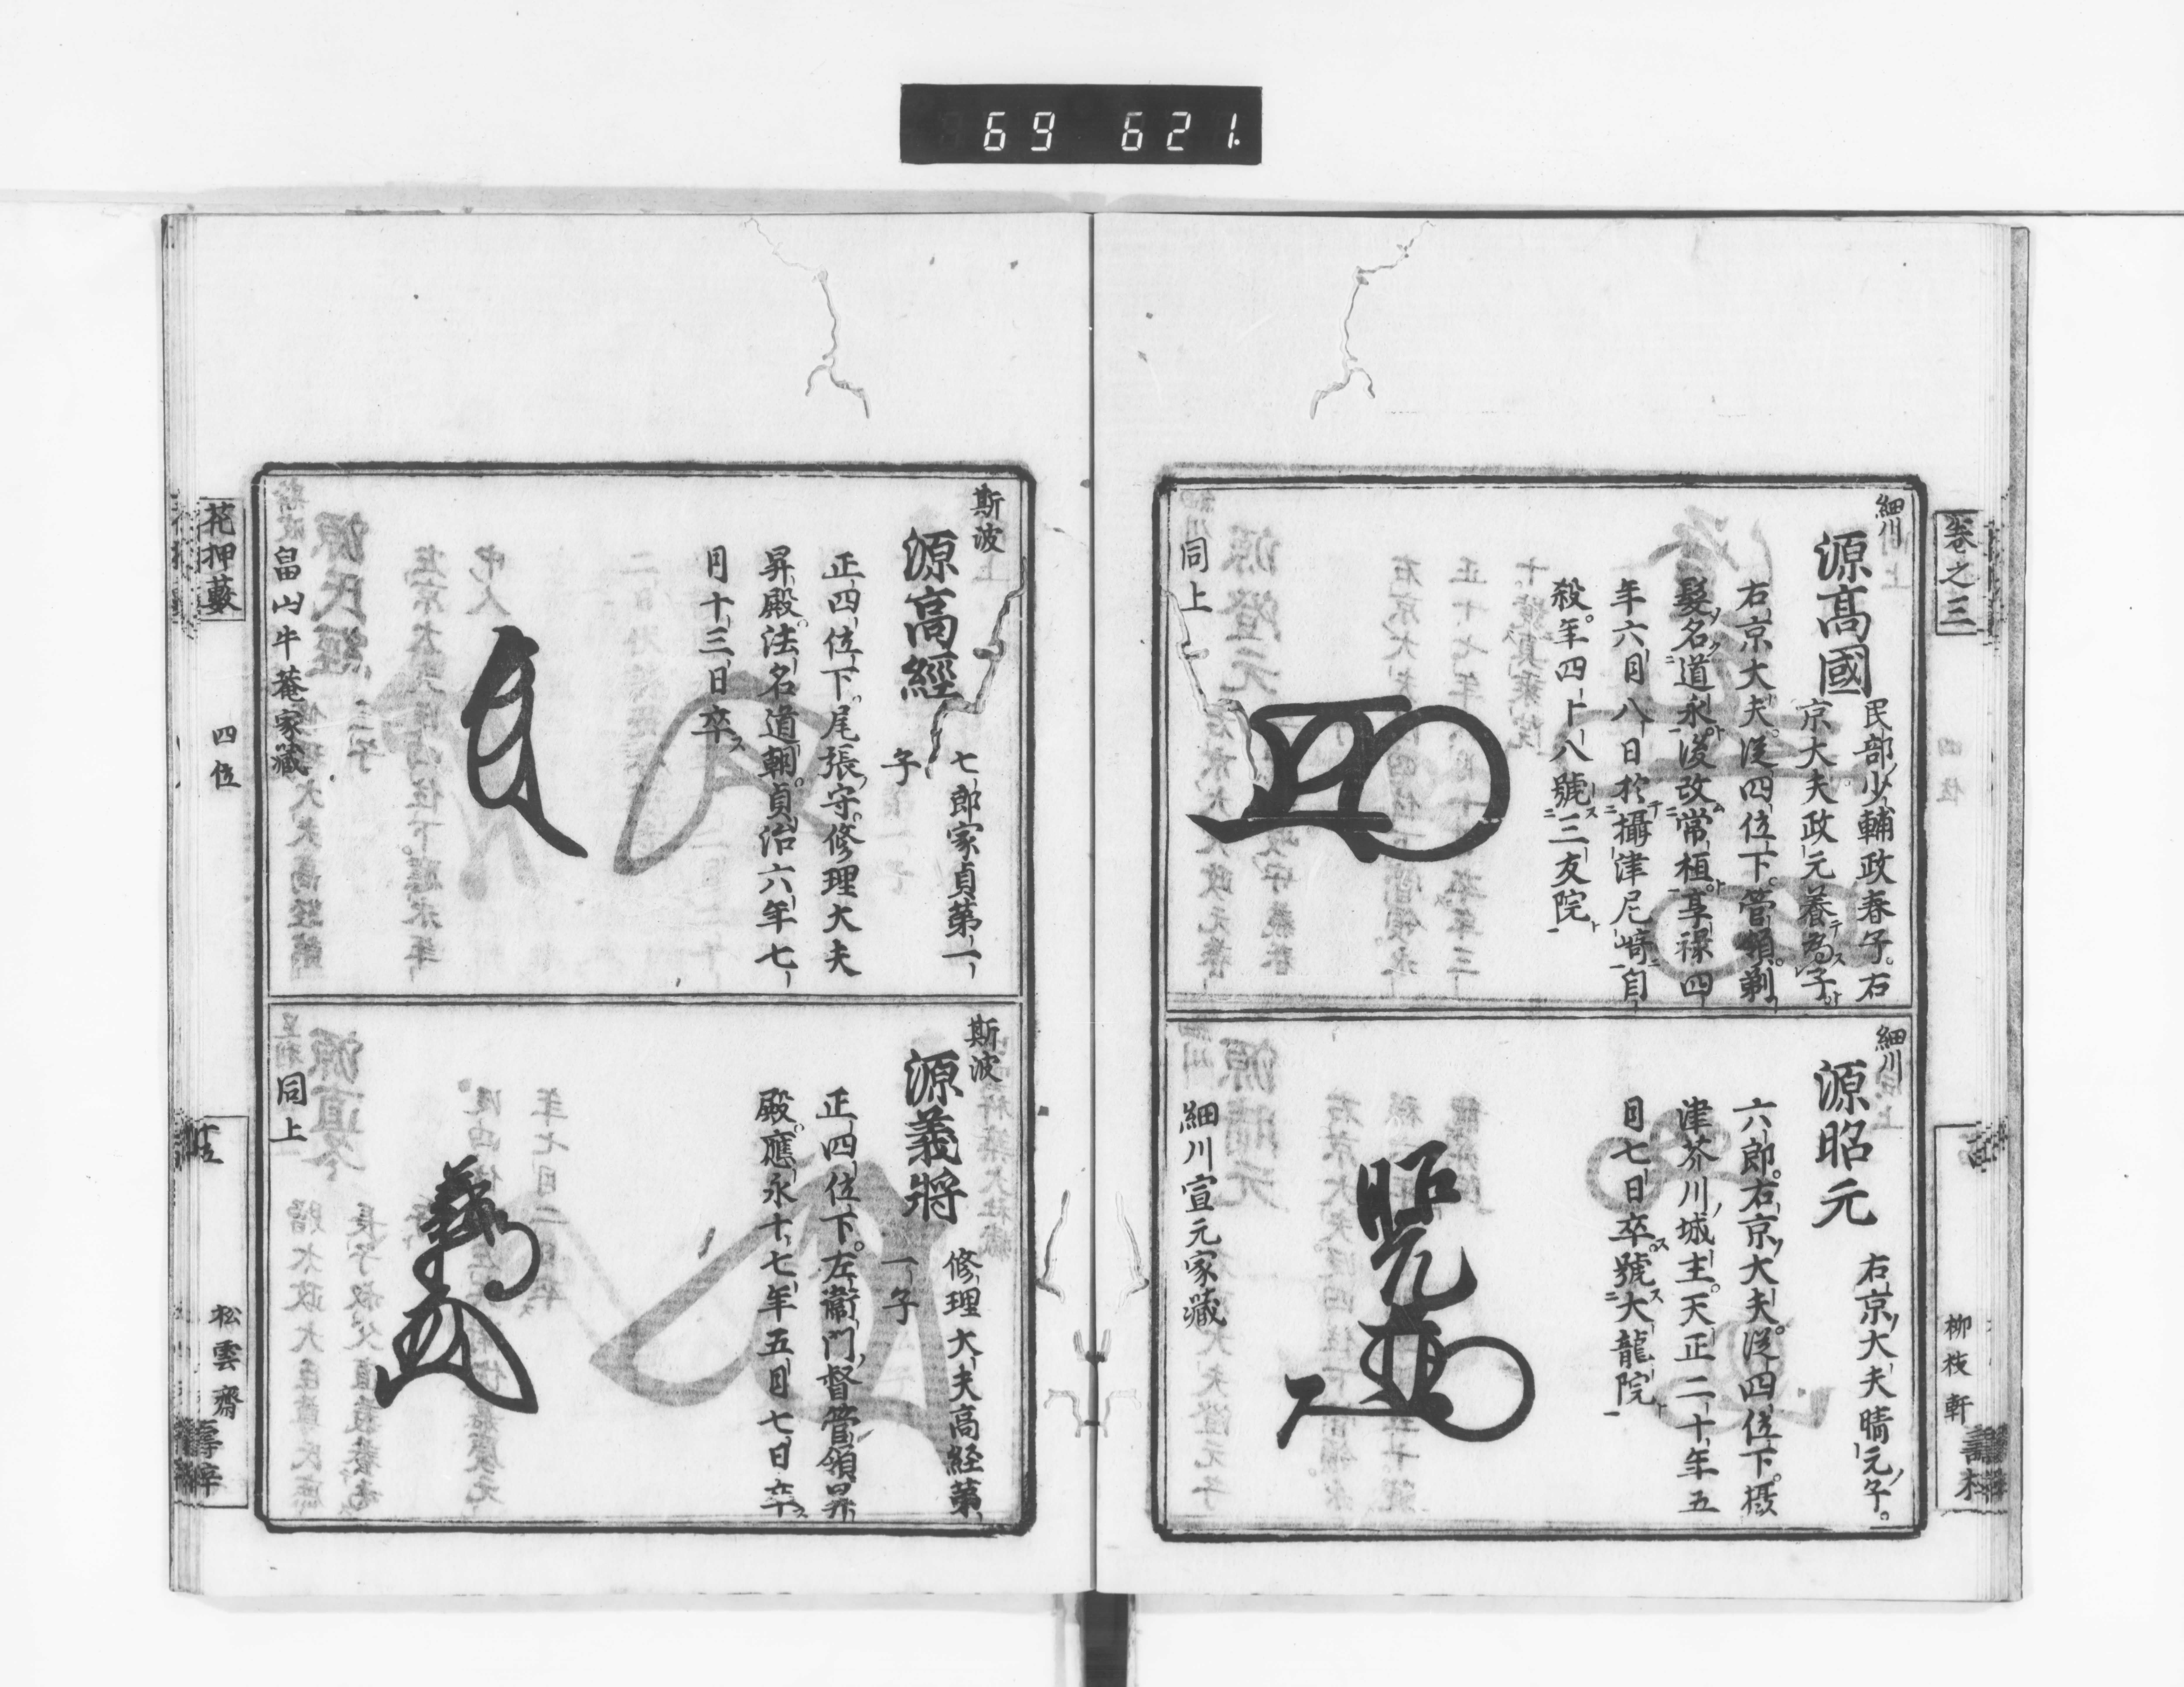 69 621.
巻之三
柳枝軒
細川
源高國
民部少輔政春子。右
京大夫政元養為子
右京大夫。従四位下。管領。剃
髪名道永。後改常桓。享禄四
年六月八日於攝津尼﨑自
殺。年四十八號三友院
同上
細川
源昭元
右京大夫晴元子。
六郎。右京大夫。従四位下。摂
津芥川城主。天正二十年五
月七日卒。號大龍院
細川宣元家藏
斯波
源高經
七郎家貞第一
子
正四位下。尾張守。修理大夫
昇殿。法名道朝。貞治六年七
月十三日卒
畠山牛菴家藏
斯波
源義將
修理大夫高経第
一子
正四位下。左衞門督管領昇
殿。應永十七年五月七日卒
同上
花押藪
四位
五
松雲齋